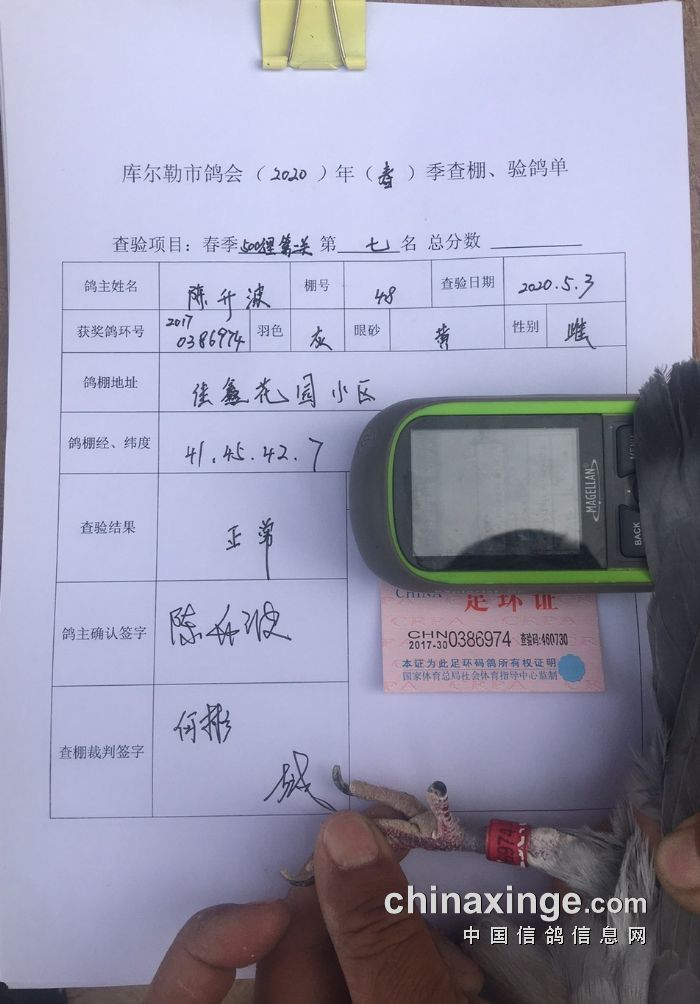 库尔勒市鸽会（2020）年（春）季查棚、验鸽单
查验项目：春季500狸第一关 第 七 名 总分数
鸽主姓名 陈升波 棚号 48 查验日期 2020.5.3
获奖鸽环号 2017 0386974 羽色 灰 眼砂 黄 性别 雌
鸽棚地址 佳鑫花园小区
鸽棚经、纬度 41.45.42.7
查验结果 正常
鸽主确认签字 陈升波
查棚裁判签字 何彬
MAGELLAN
MENU
BACK
CHINA 足环证
CRPA CRPA
CHN 2017-30 0386974 查验码:460730
本证为此足环码鸽所有权证明
国家体育总局社会体育指导中心监制
6974
chinaxinge.com
中国信鸽信息网